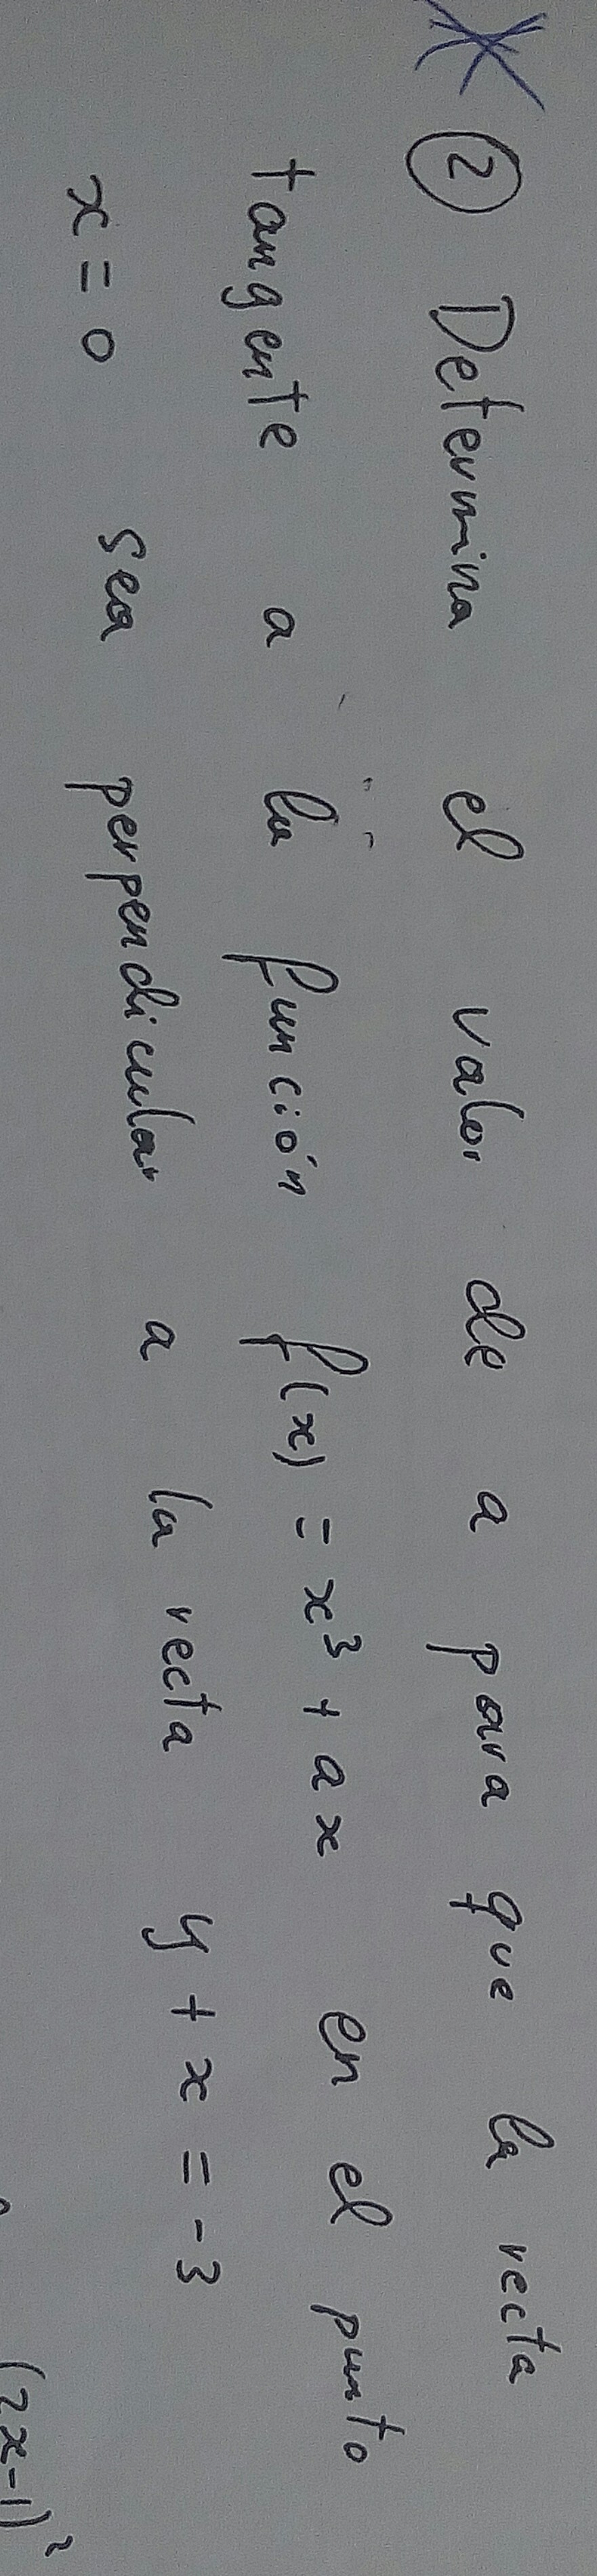 ② Determina el valor de a para que la recta
tangente a la función f(x) = x³ + ax en el punto
x = 0 sea perpendicular a la recta y + x = -3
(2x-1)²